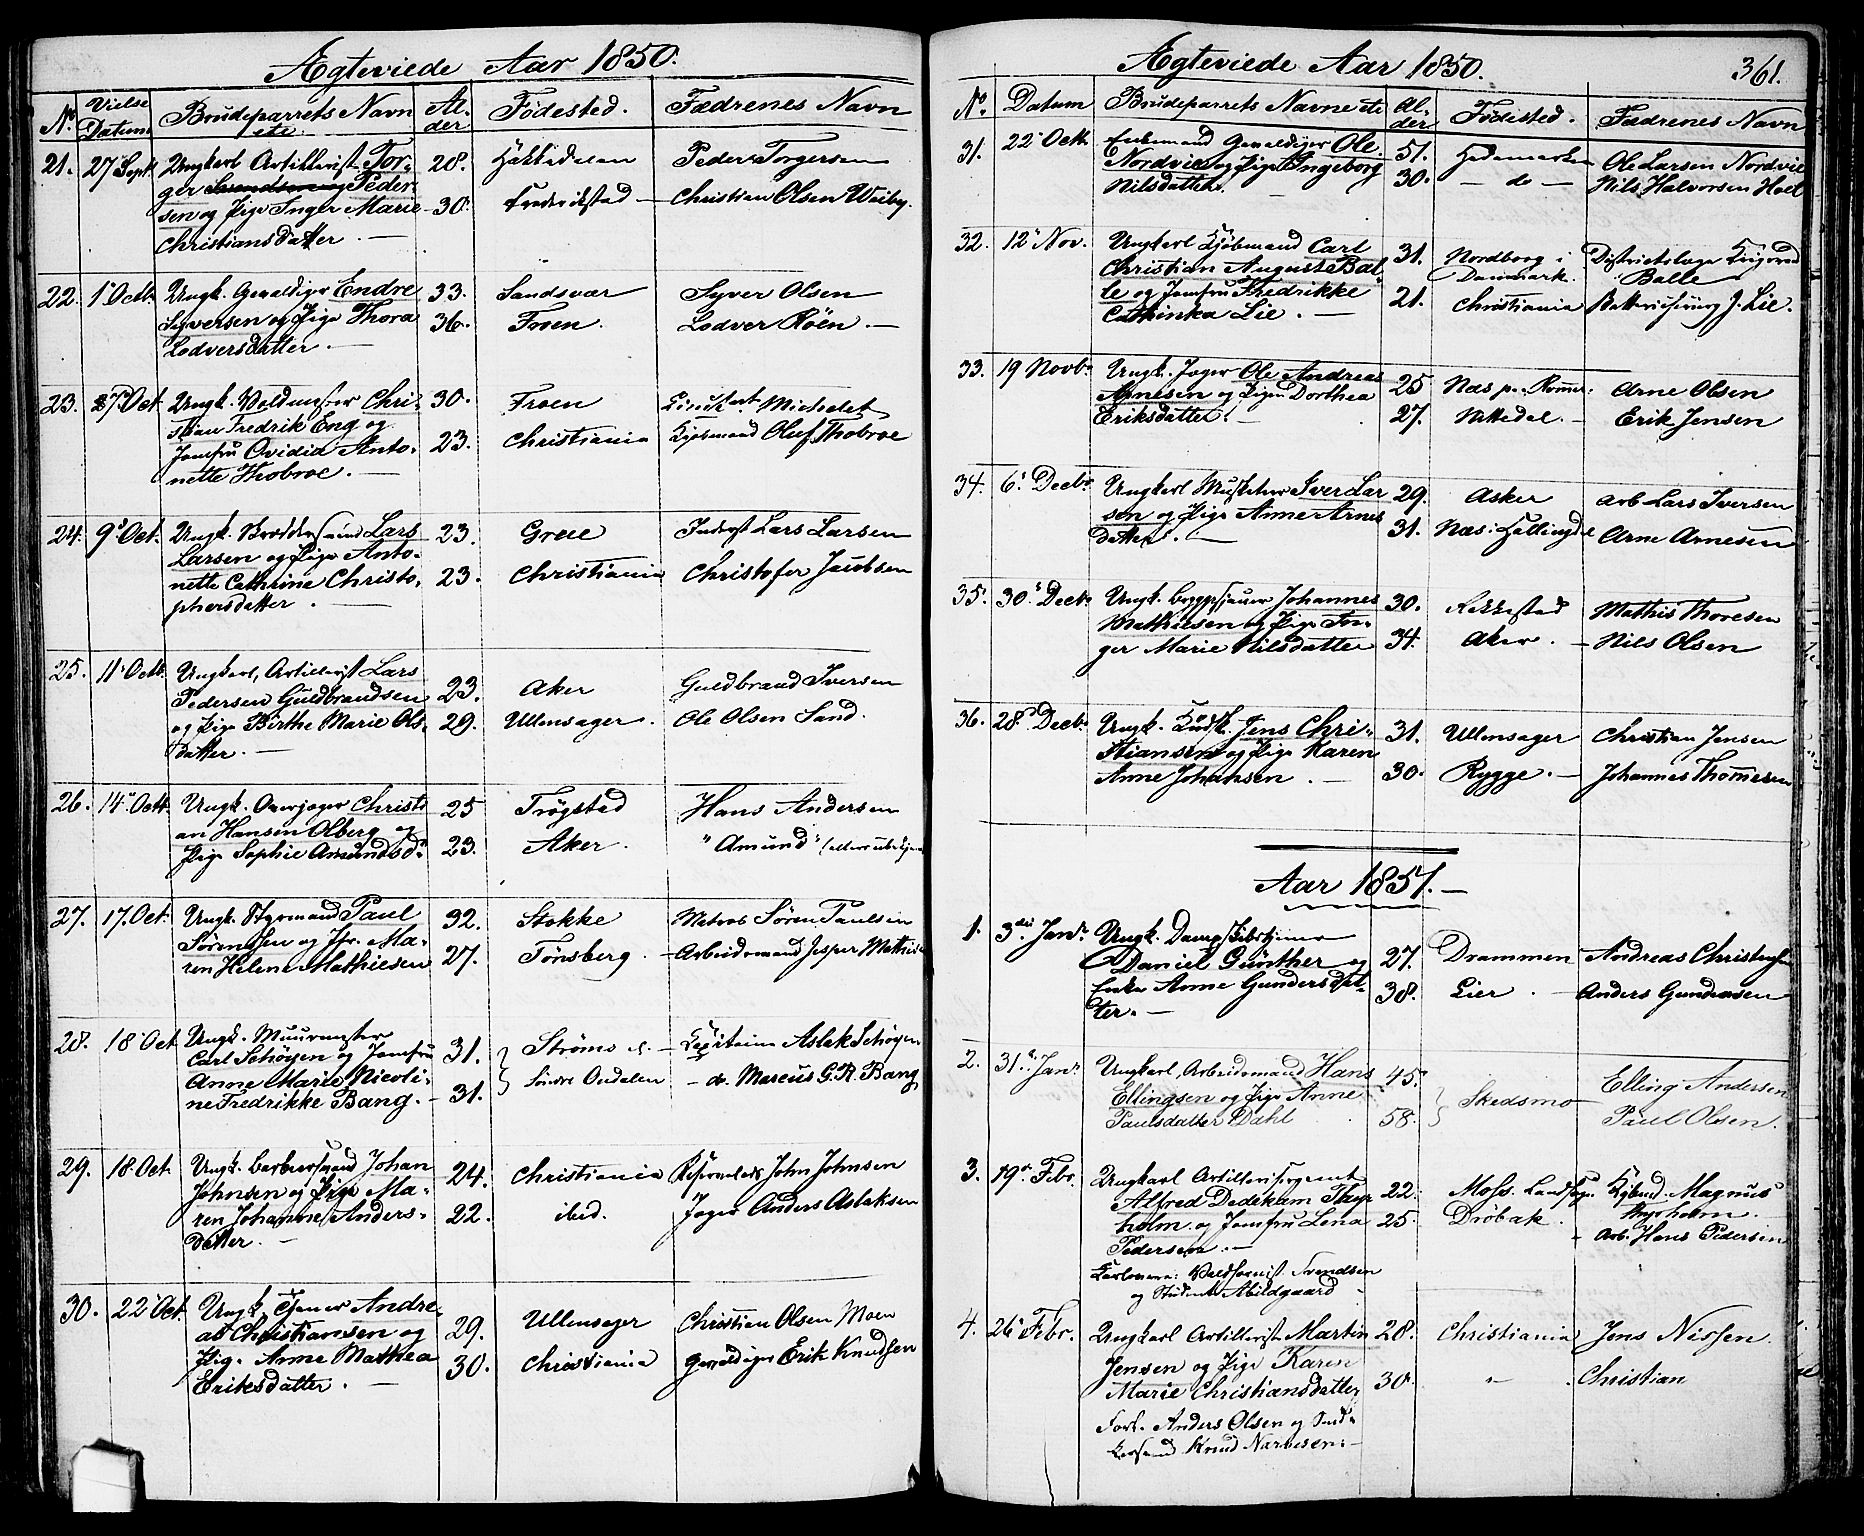 Ægteviede Aar 1850.
No Vielse Datum Brudeparrets Navn etc. Alder Fødested. Fædrenes Navn
21. 27 Sept. Ungkarl Artillerist Tor- 28. Hakkedalen Peder Torgersen
ger Svendsen og Peder-
sen og Pige Inger Marie 30. Frederikstad Christian Olsen Weiby.
Christiansdatter.
22. 1 Octb. Ungk. Gevaldiger Endre 33. Sandsvær Syver Olsen
Syversen og Pige Thora 36. Froen. Lodver Röen.
Lodversdatter.
23. 27 Oct. Ungk. Chri- 30. Froen Michelet
stian Fredrik Eng og
Jomfru Ovidia Anto- 23. Christiania Kjøbmand Oluf Thobroe
nette Thobroe.
24. 9 Oct. Ungk. Lars 23. Grue Inderst Lars Larsen
Larsen og Pige Anto-
nette Cathrine Christo- 23. Christiania Christofer Jacobsen
phersdatter.
25. 11 Octb. Ungkarl, Artillerist Lars
Pedersen Guldbrandsen 23. Aker Guldbrand Iversen
og Pige Birthe Marie Ols- 29. Ullensager. Ole Olsen Sand.
datter.
26. 14 Octb. Ungk. Overjæger Christi- 25 Trøgstad Hans Andersen
an Hansen Olberg og
Pige Sophie Amundsd. 23. Aker. "Amund"
27. 17. Oct. Ungk. Styrmand Paul 32. Stokke Matros Søren Paulsen
Sørensen og Jfr. Ma- 27. Tønsberg. Arbeidsmand Jesper Mathis
ren Helene Mathiesen
28. 18 Oct. Ungk. Muurmester
Carl Schøyen og Jomfru 31. Strøms Kapitain Aslak Schøyen
Anne Marie Nicoli- Söndre Oudalen
ne Fredrikke Bang. 31. do. Marcus G. R. Bang
29. 18. Oct. Ungk. Barbeersvend Johan 24. Christiania John Johnsen
Johnsen og Pige Ma-
ren Johanne Anders- 22. ibid. Jæger Anders Aslaksen
datter.
30. 22 Oct. Ungk. Tjener Andre-
as Christiansen og 29. Ullensager Christian Olsen Moen
Pige Anne Mathea 30. Christiania Gevaldiger Erik Knudsen
Eriksdatter.
Ægteviede Aar 1850. 361.
No. Datum Brudeparrets Navne etc Alder Fødested. Fædrenes Navn
31. 22 Octb. Enkemand Gevaldiger Ole 51. Hedemarken Ole Larsen Nordvie
Nordvie og Pige Ingeborg 30. do Nils Halvorsen Hoel
Nilsdatter.
32. 12 Nov. Ungkarl Kjøbmand Carl 31. Nordborg i Districtslæge
Christian August Bal- Danmark. Balle
le og Jomfru Fredrikke 21. Christiania J. Lie.
Cathinka Lie.
33. 19 Novb. Ungk. Jæger Ole Andreas 25 Næs p. Rommer. Arne Olsen
Arnesen og Pigen Dorthea 27. Nittedal. Erik Jensen
Eriksdatter.
34. 6. Decb. Ungkarl Musketeer Iver Lar- 29. Asker Arb Lars Iversen
sen og Pige Anne Arnes- 31. Næs i Hallingdal Arne Arnesen
datter.
35. 30 Decb. Ungk. Johannes 30. Rakkestad Mathis Thoresen
Mathiesen og Pige In- 34. Aker. Nils Olsen
ger Marie Nilsdatter
36. 28 Decb. Ungk. Kudsk Jens Chri- 31. Ullensager Christian Jensen
stiansen og Pige Karen
Anne Johansen. 30. Rygge. Johannes Thomesen
Aar 1851.
1. 3die Jan. Ungk.
Daniel Günther og 27. Drammen Andreas Christensen
Enke Anne Gundersdat- 38. Lier. Anders Gundersen
ter.
2. 31. Jan. Ungkarl, Arbeidsmand Hans 45. Elling Andersen
Ellingsen og Pige Anne Skedsmo
Paulsdatter Dahl 58. Paul Olsen.
3. 19. Febr. Ungkarl Artillerisergeant
Alfred Dedekam Thyr- 22. Moss Landsogn Kjøbmd. Magnus
holm og Jomfru Lena 25. Drøbak. Thyrholm.
Pedersen. Arb. Hans Pedersen
Forlovere: Svendsen
og Student Abildgaard
4. 26 Febr. Ungkarl Artillerist Martin 28. Christiania Jens Nissen.
Jensen og Pige Karen
Marie Christiansdatter 30. " Christian
Forl. Anders Olsen og
Knud Narvesen.